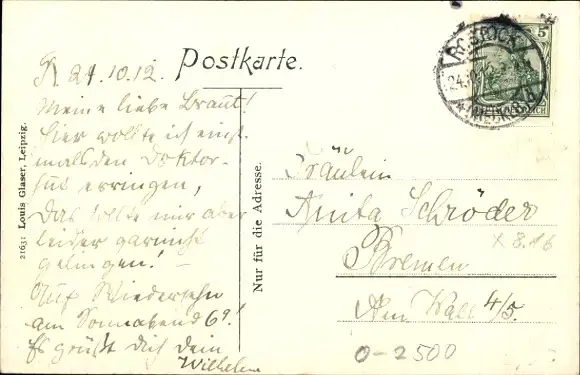 Postkarte.
R. 24.10.12.
Meine liebe Braut!
Hier wollte ich einst
mals den Doktor-
hut erringen,
Das sollte mir aber
leider garnicht
gelingen! –
Auf Wiedersehn
am Sonnabend 6⁹!
Es grüßt Dich Dein
Wilhelm
21631 Louis Glaser, Leipzig.
Nur für die Adresse.
ROSTOCK
24.10.12
* (MECKLB)
5
Fräulein
Anita Schröder
Bremen
Am Wall 4/5.
X 8.16
0-2500